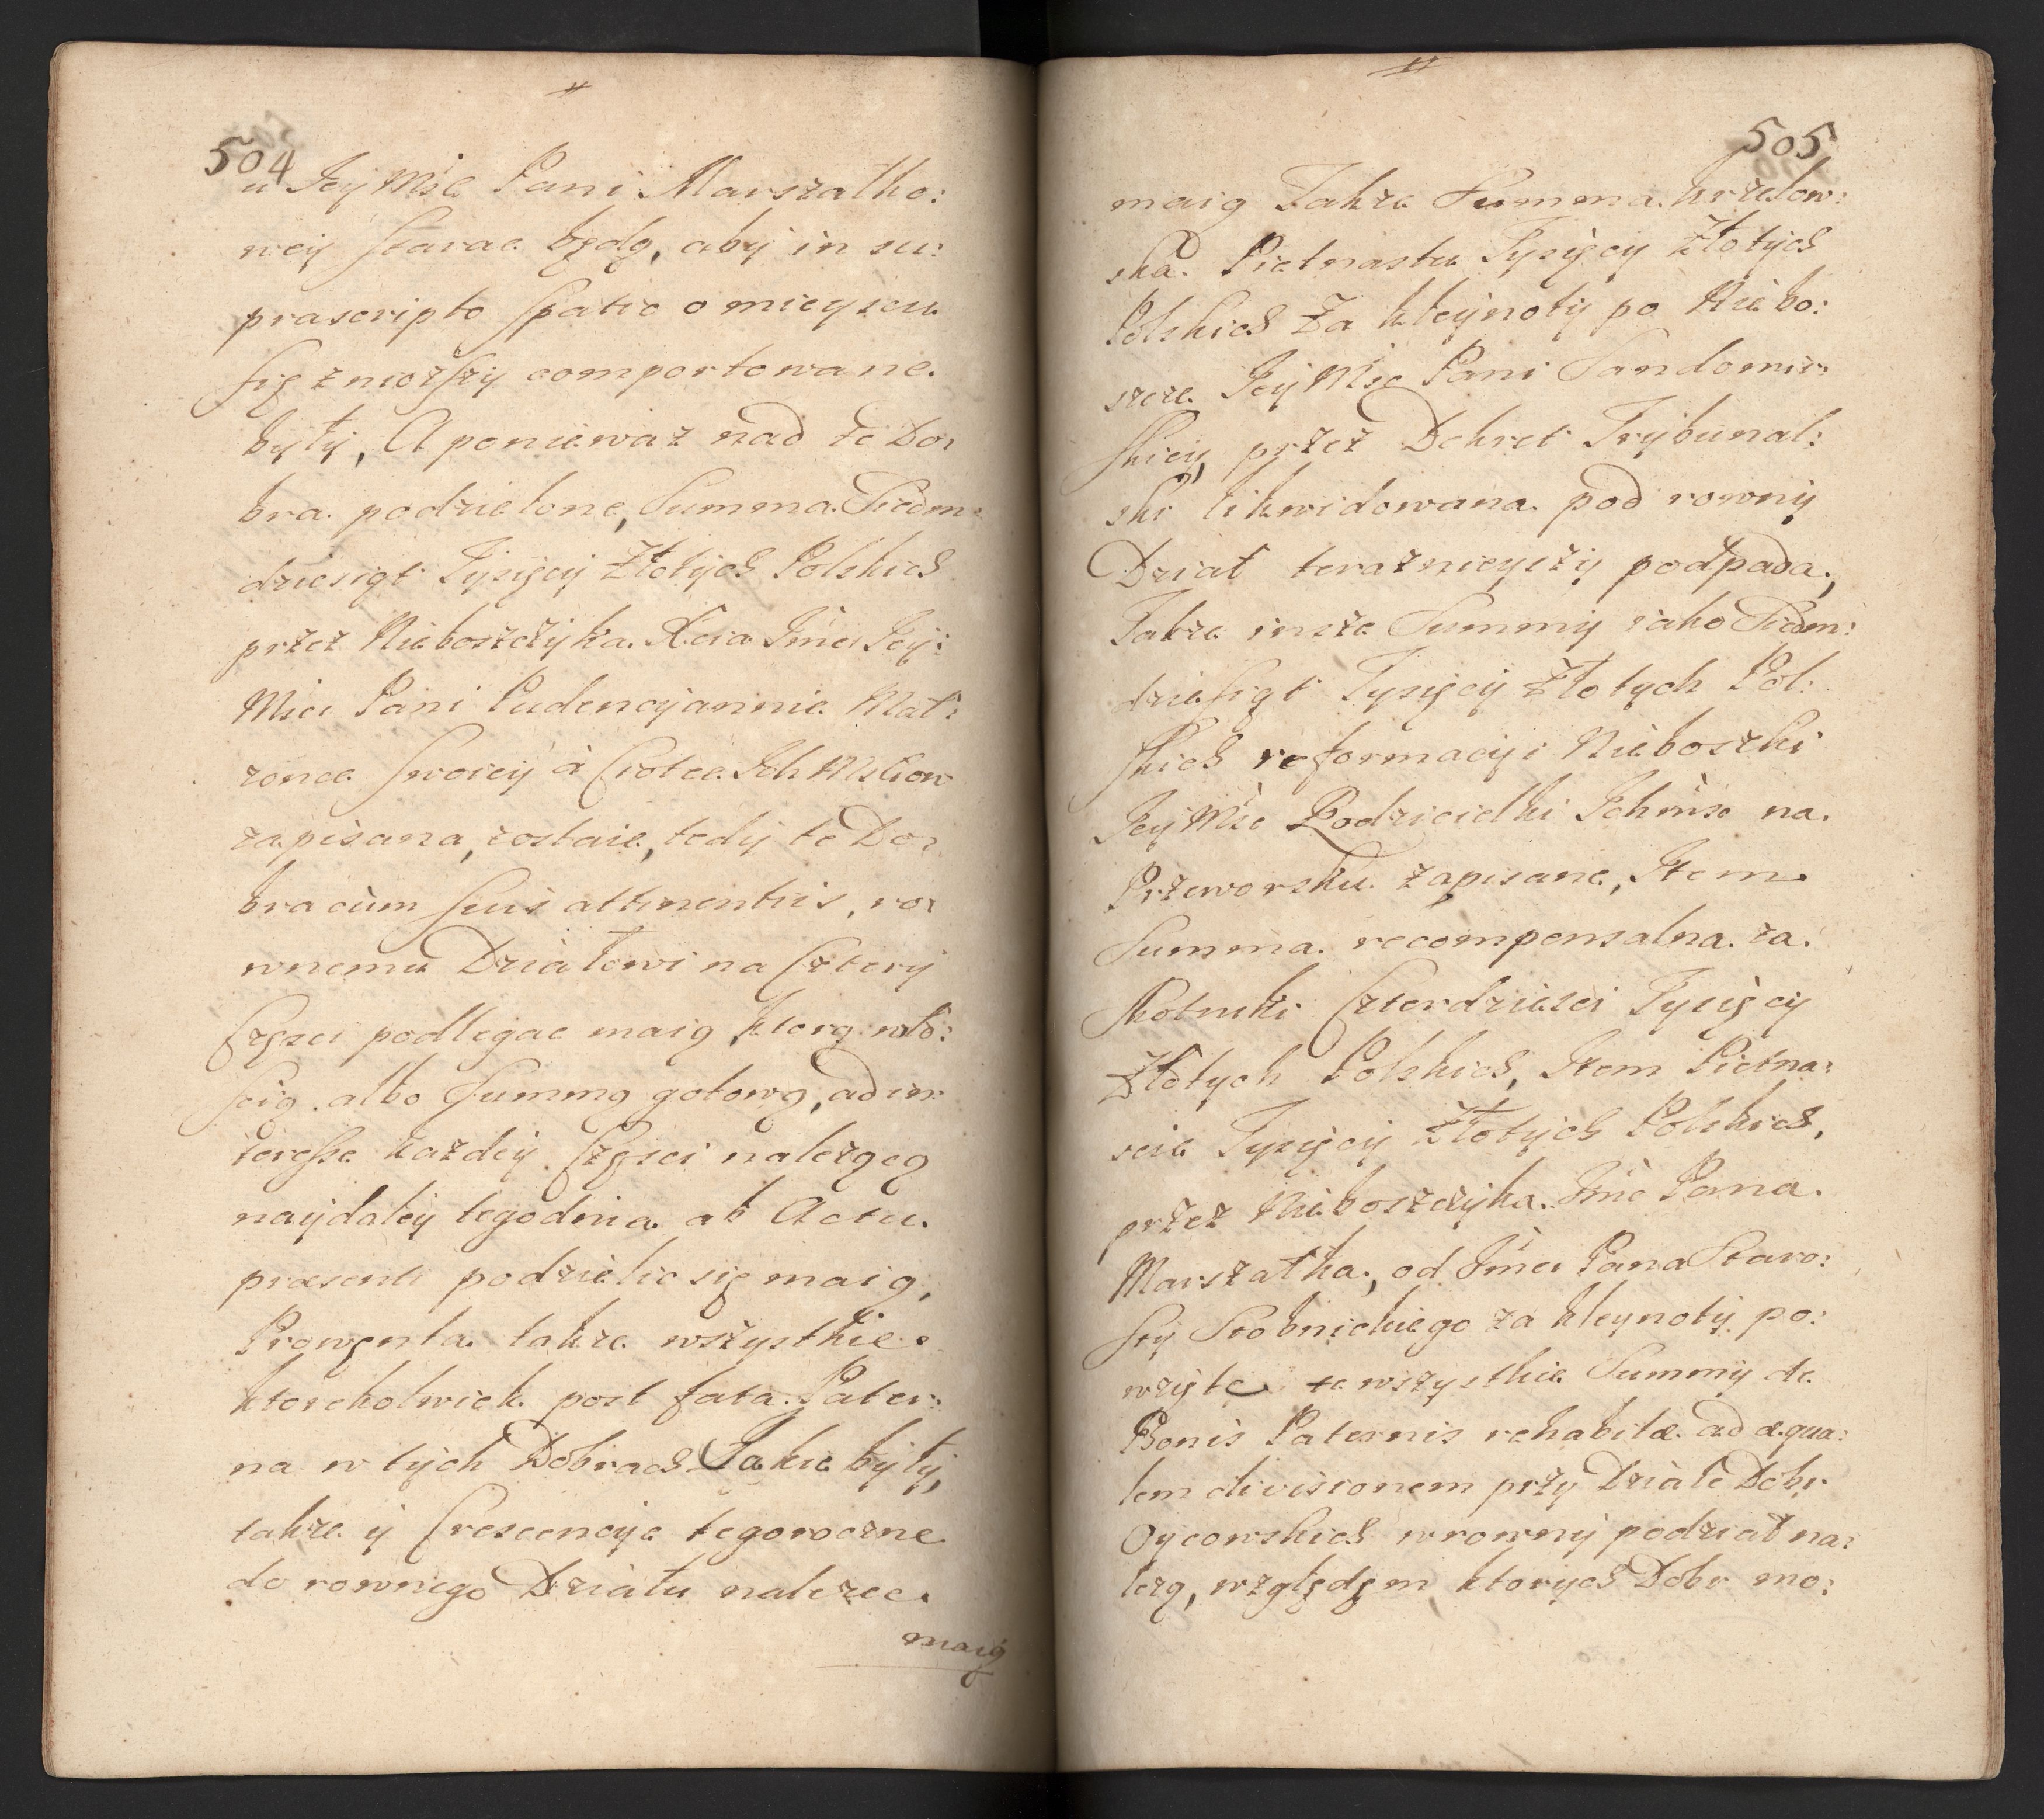 504
u Jey Mśc Pani Marszałko:
wey starac będą, aby in su:
prascripto spatio o mieyscu
się znioższy comportowane
były, A poniewaz nad te Do:
bra podzielone, Summa Siedm:
dziesiąt Tysięcy Złotych Polskich
przez Nieboszczyka Xcia Jmci Jey:
Mści Pani Pudencyannie Mał:
zonce swoiey à Ciotce Ich Mściow
zapisana, zostaie, tedy te Do:
bra cùm suis attinentiis, ro:
wnemu Działowi na Cztery
Częsci podlegac maią, ktorą wło:
scią albo Summą gotową, ad in
teresse kazdey Częsci nalezącą
naydaley tegodnia ab Actu
præsenti podzielic się maią,
Prowęnta takze wszystkie
kterekolwiek post fata Pater:
na w tych Dobrach Jakie były,
takze y Crescencye tegoroczne
do rownego Działu nalezec
maią
505
maią Takze Summa krzelow:
ska Pietnastu Tysięcy Złotych
Polskich Za kleynoty po Niebo:
szcze Jey Mśc Pani Sandomir:
skiey, przez Dekret Trybunal:
ski likwidowana pod rowny
Dział teraznieyszy podpada,
Takze insze Summy iako Siedm:
dziesiąt Tysięcy Złotych Pol:
skich reformacyi Nieboszki
Jey Mśc Rodzicielki Ichmśc na
Przeworsku zapisane, Item
Summa recompensalna za
Skotniki Czterdziesci Tysięcy
Złotych Polskich, Item Pietna:
scie Tysięcy Złotych Polskich,
przez Nieboszczyka Jmć Pana
Marszałka, od Jmci Pana Staro:
sty Stobnickiego za kleynoty po:
wzięte te wszystkie Summy de
Bonis Paternis rehabitæ ad æqua:
lem divisionem przy Dziale Dobr
Oycowskich w rowny podział na:
lezą, względęm ktorych Dobr mo: